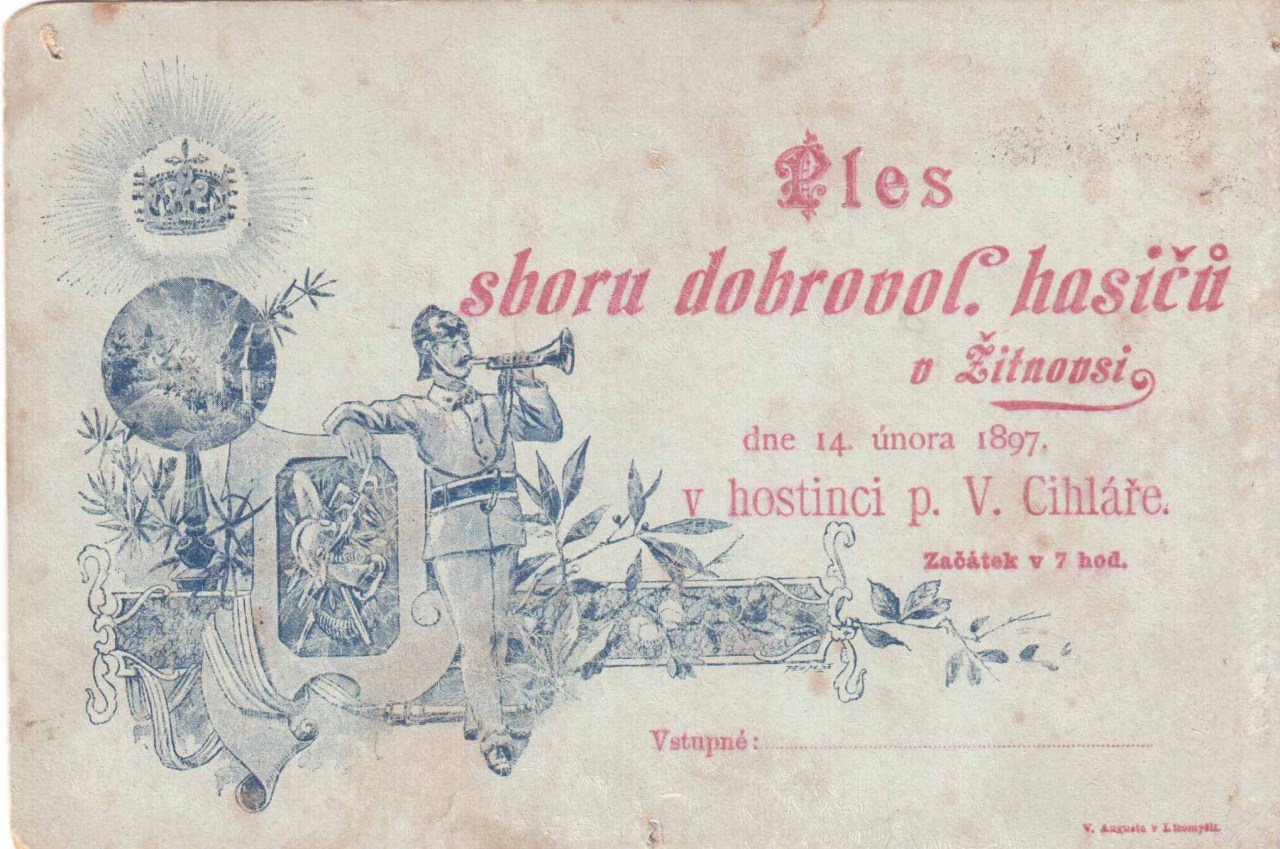 Ples
sboru dobrovol. hasičů
v Žitnovsi
dne 14. února 1897.
v hostinci p. V. Cihláře.
Začátek v 7 hod.
Vstupné:
V. Augusta v Litomyšli.